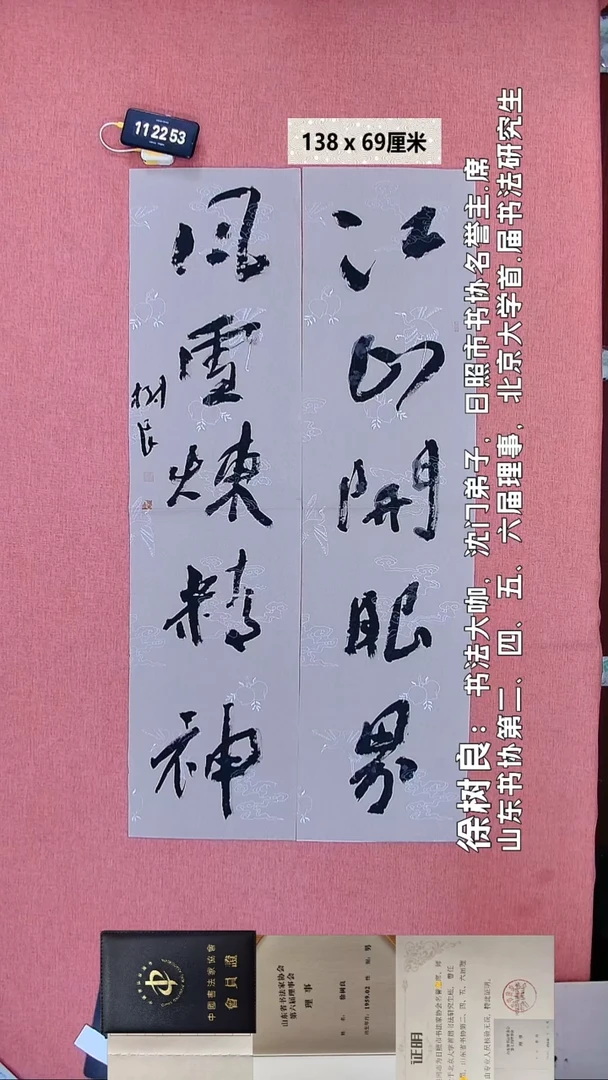 11 22 53
138 x 69厘米
江山開眼界
風雪煉精神
樹良
徐树良：书法大咖．沈门弟子．日照市书协名誉主.席
山东书协第二、四、五、六届理事，北京大学首.届书法研究生
中國書法家協會
會員證
山东省书法家协会
第六届理事会
理事
徐树良
男
证明